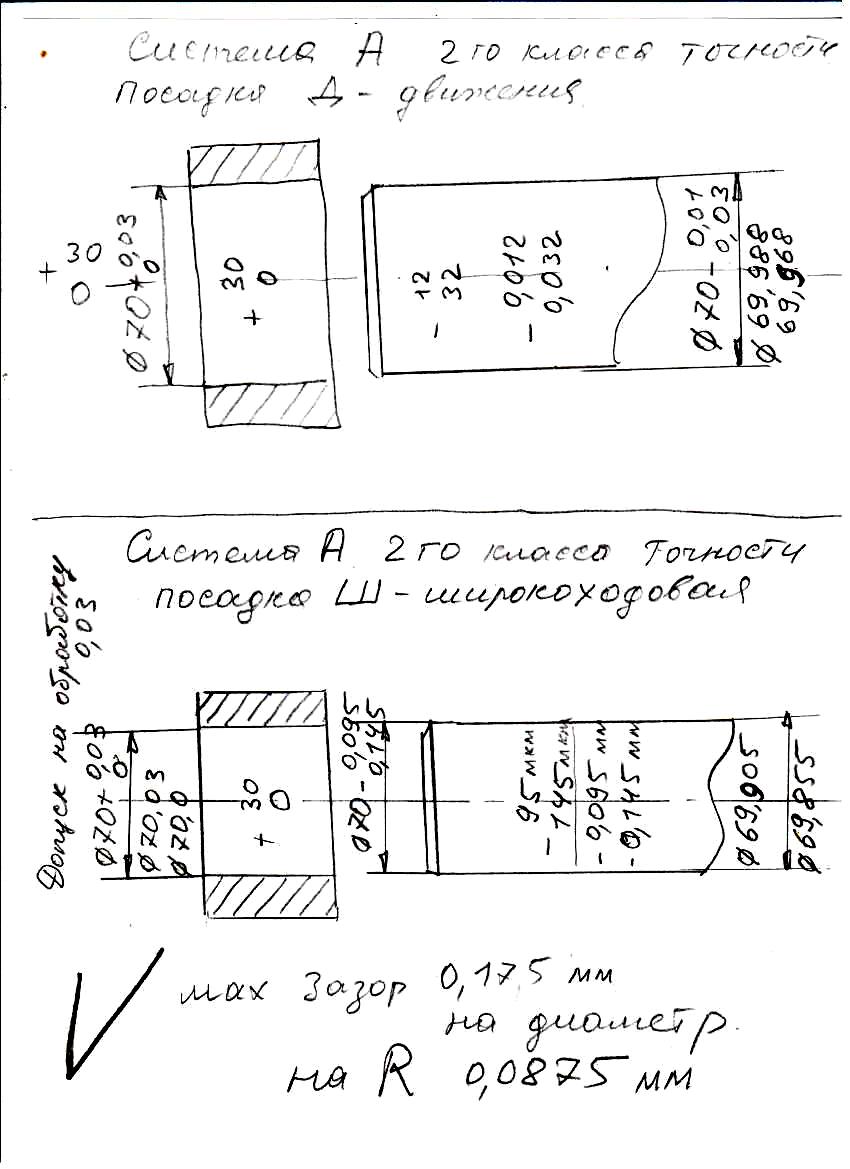 Система А 2го класса точности
Посадка Д - движения
+ 30
0
Ø70 + 0,03
0
+ 30
0
- 12
32
- 0,012
0,032
Ø70 - 0,01
0,03
Ø 69,988
69,968
Система А 2го класса точности
посадка Ш - широкоходовая
Допуск на обработку
0,03
Ø70 + 0,03
0
Ø70,03
Ø70,0
+ 30
0
Ø70 - 0,095
0,145
- 95 мкм
- 145 мкм
- 0,095 мм
- 0,145 мм
Ø69,905
Ø69,855
мах зазор 0,175 мм
на диаметр.
на R 0,0875 мм